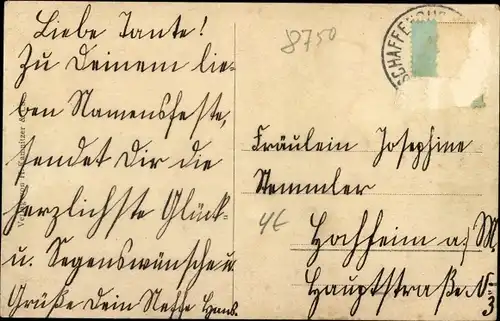 Liebe Tante!
Zu Deinem lie-
ben Namensfeste,
sendet Dir die
herzlichste Glück-
u. Segenswünsche u.
Grüße Dein Neffe Hans.
8750
SCHAFFENBU
Fräulein Josephine
Stemmler
4€
Hochheim a/M
Hauptstraße N: 3